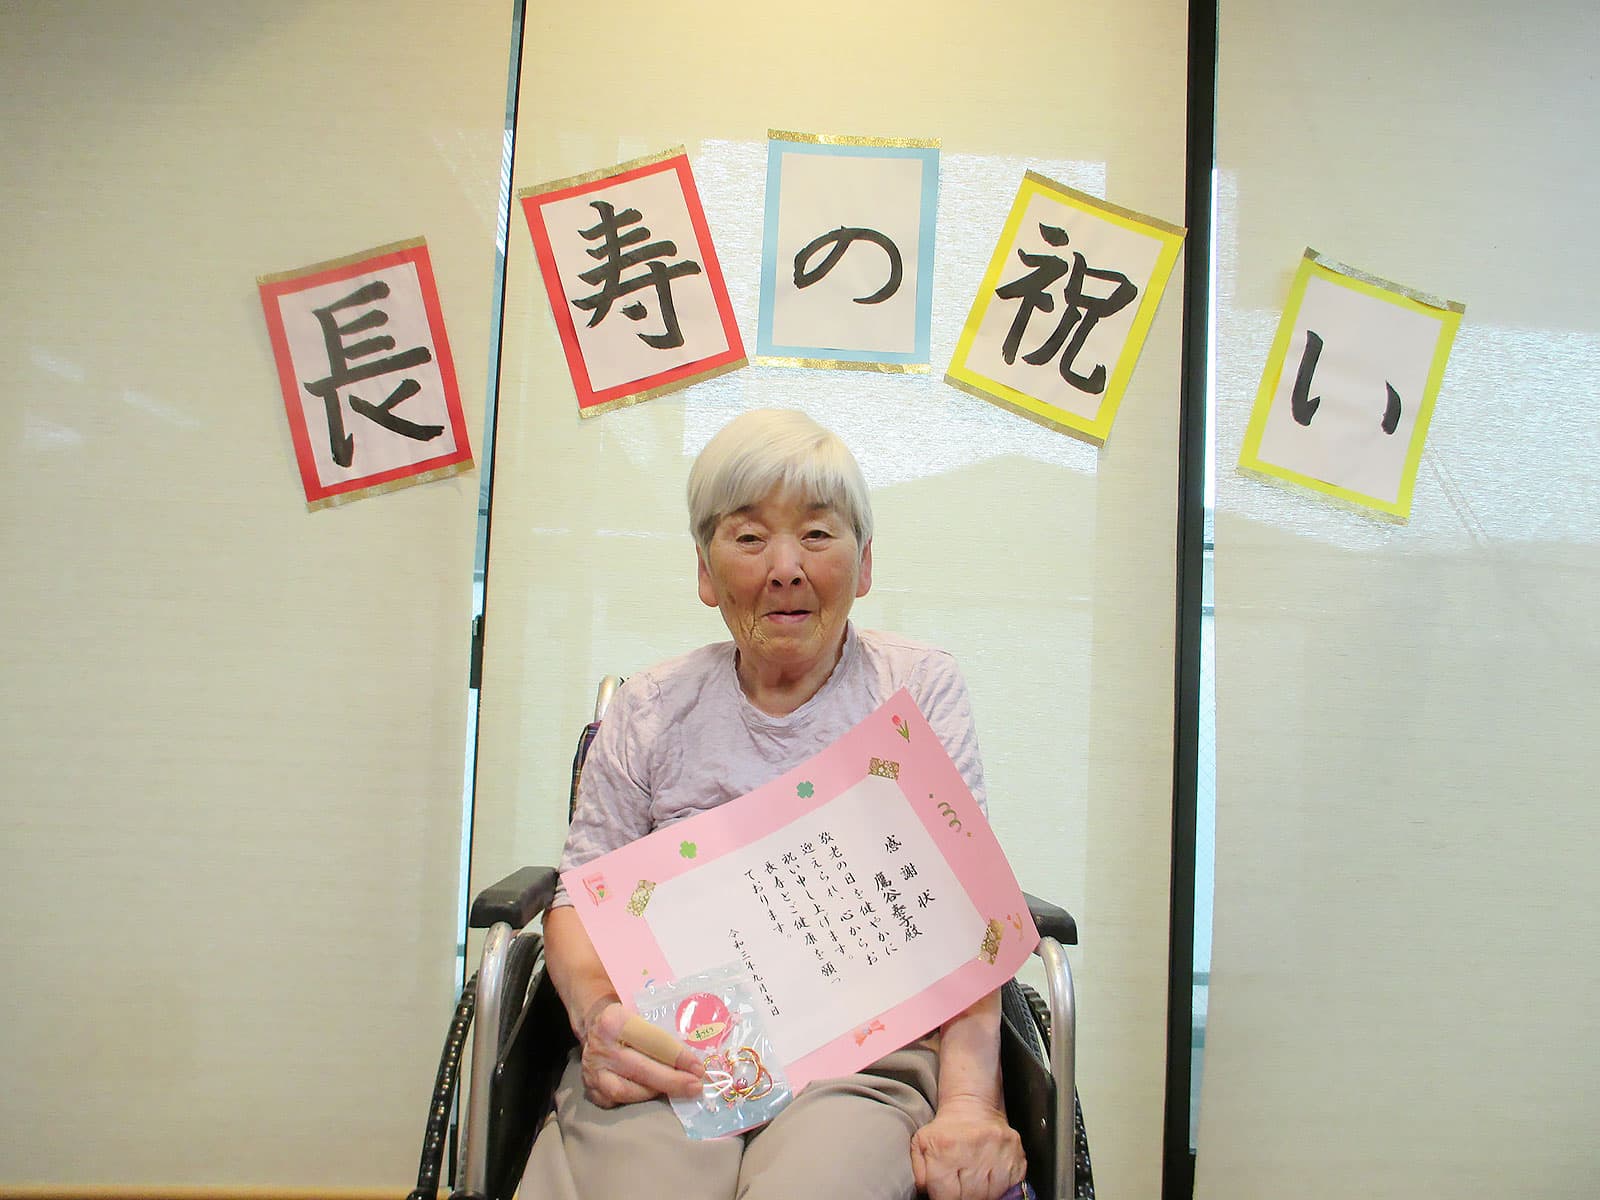 長寿の祝い
感謝状
鷹谷泰子殿
敬老の日を健やかに
迎えられ、心からお
祝い申し上げます。
長寿とご健康を願っ
ております。
令和三年九月吉日